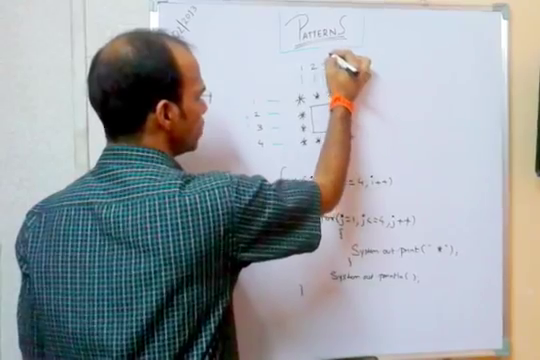 02/2013
PATTERNS
1 2
1 — * *
2 — *
3 — *
4 — * *
= 4, i++)
for(j=1, j<=4, j++)
{
System out print(" * "),
}
System out println( ),
}